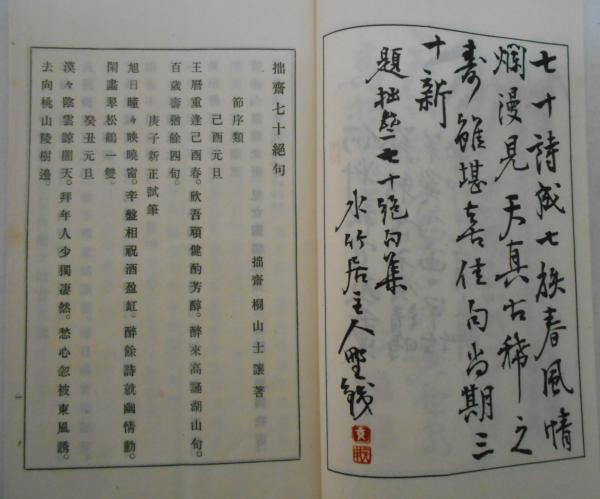 七十詩成七換春風情
爛漫見天真古稀之
壽雖堪喜佳句尚期三
十新
題拙齋七十絶句集
水竹居主人
拙齋七十絕句
拙齋 桐山士讓著
節序類
己酉元旦
王曆重逢己酉春。欣吾頑健酌芳醇。醉來高誦湖山句。
百歲壽猶餘四旬。
庚子新正試筆
旭日曈々映曉窗。辛盤相祝酒盈缸。醉餘詩就幽情動。
閑畫翠松鶴一雙。
癸丑元旦
漠々陰雲諒闇天。拜年人少獨凄然。愁心忽被東風誘。
去向桃山陵樹邊。